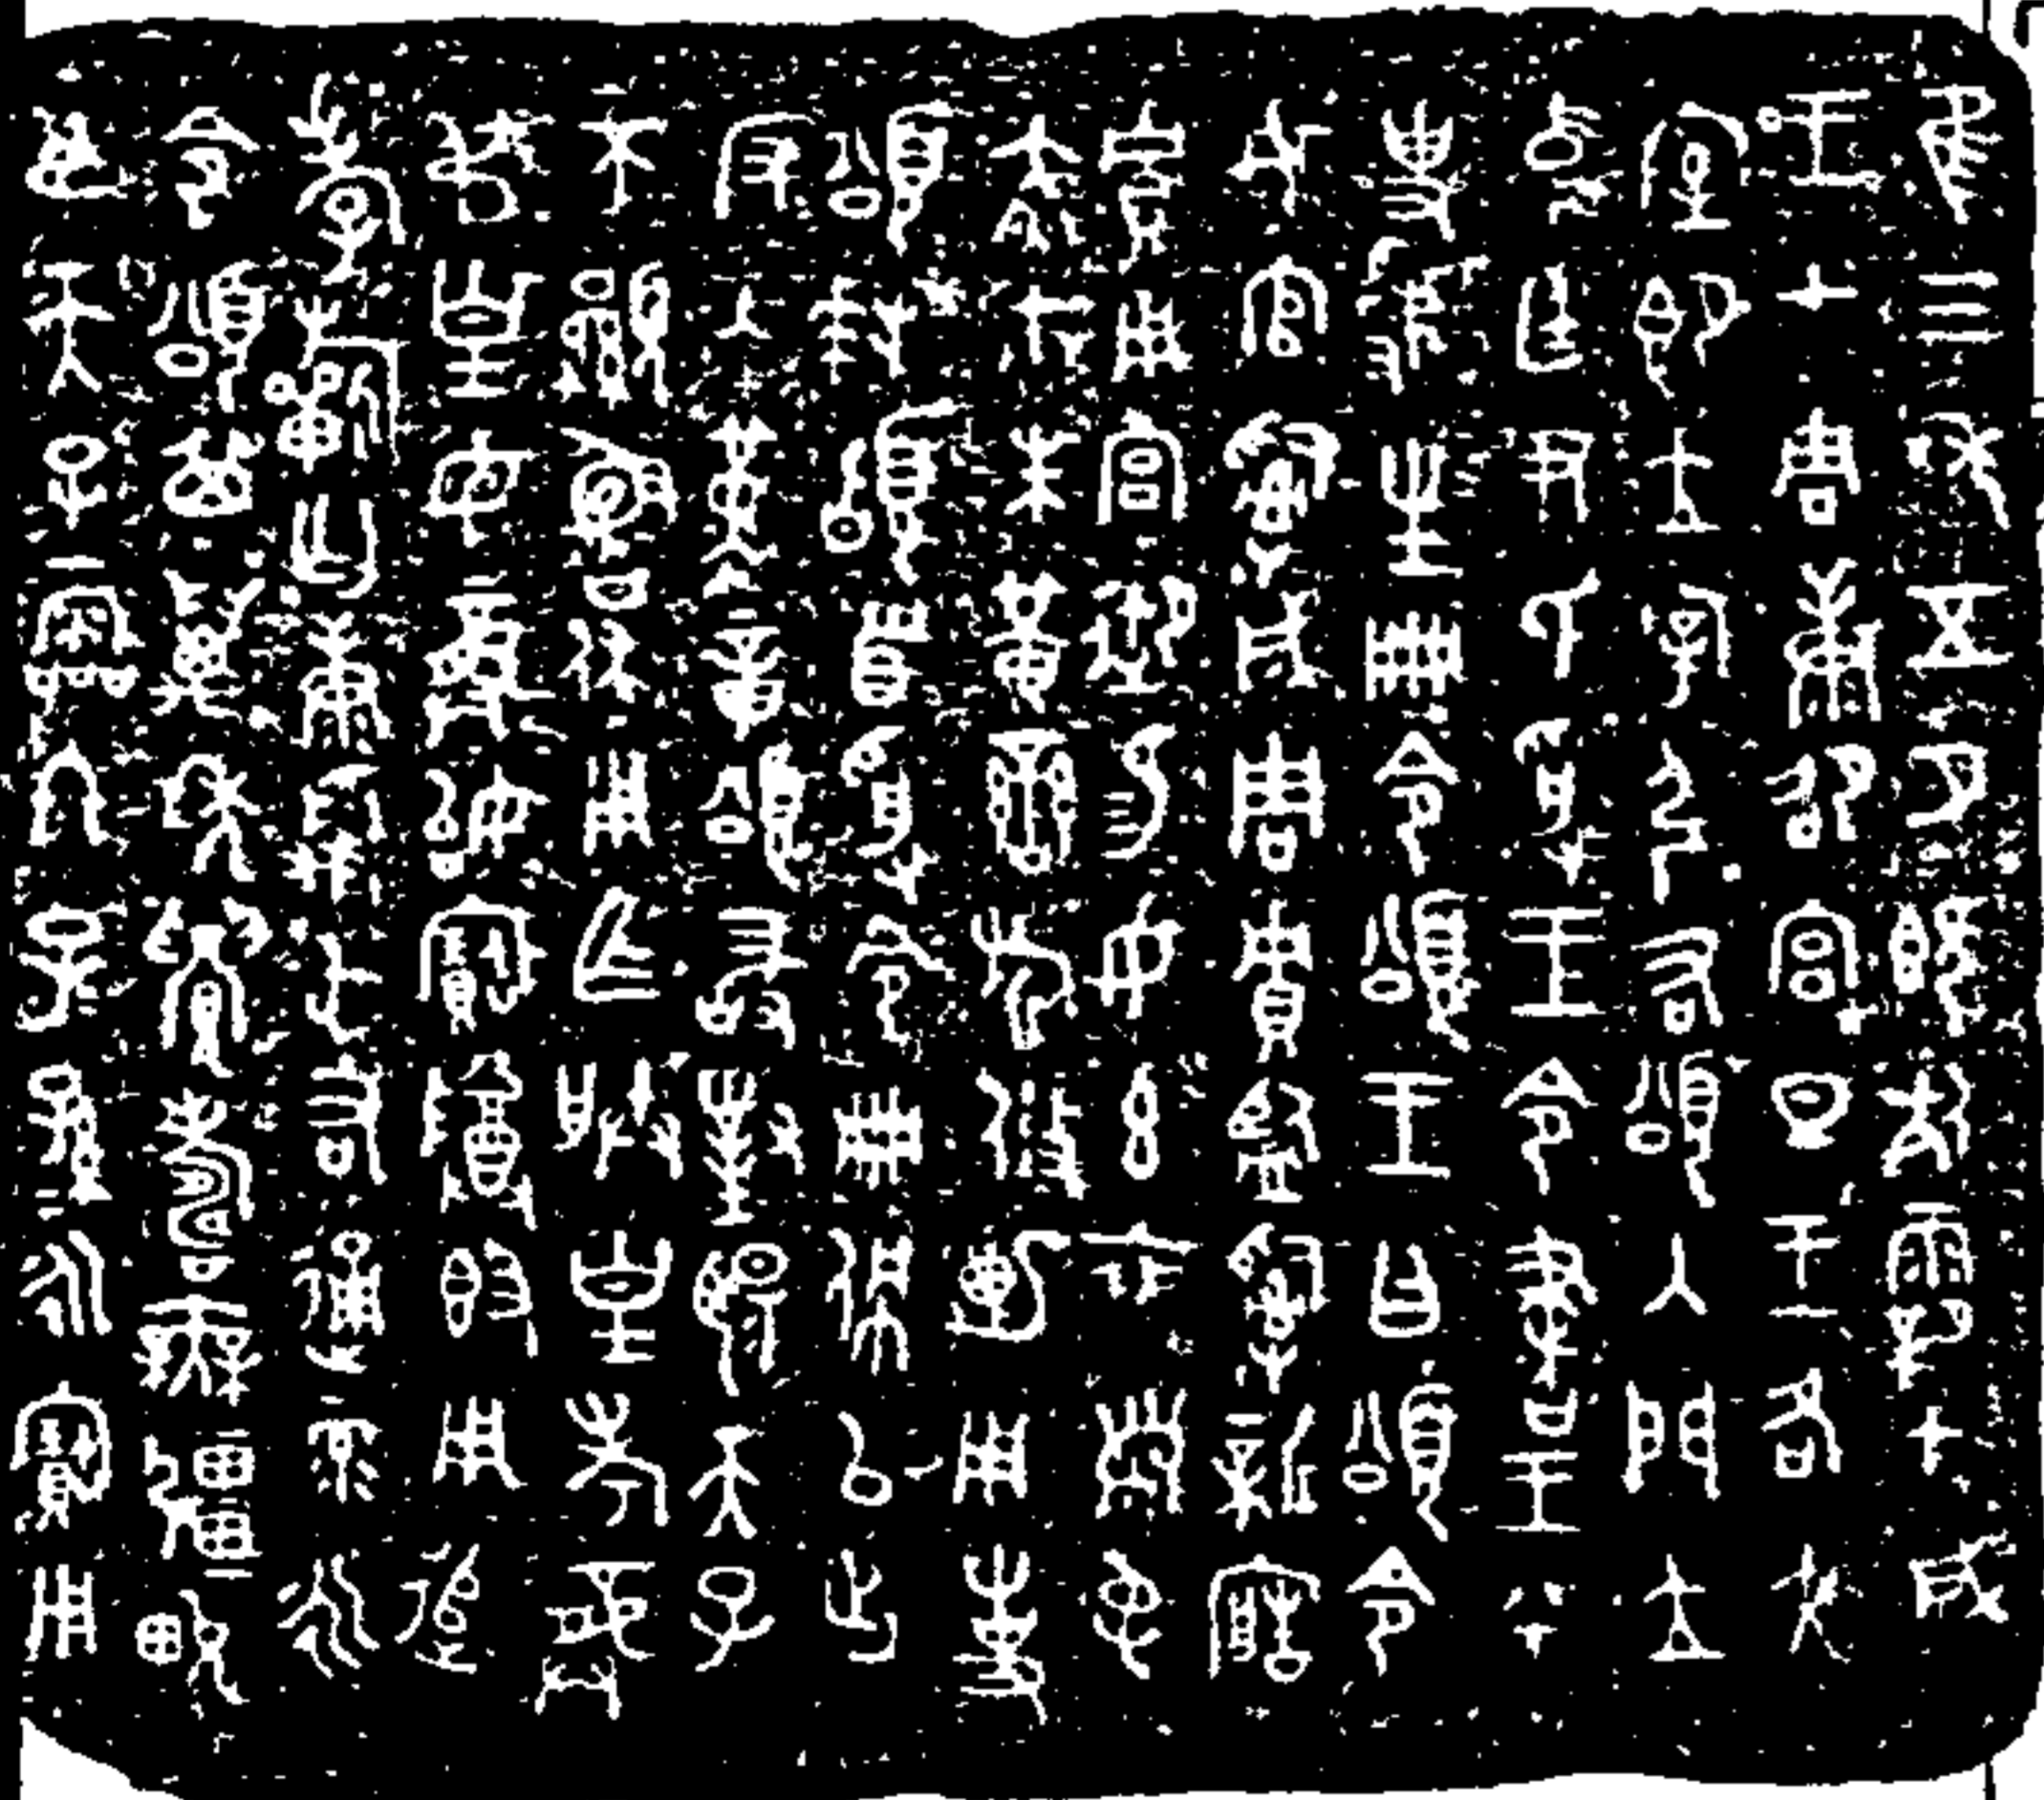 隹三年五月既死霸甲戌
王才周康卲宮旦王各大
室即立宰弘右頌入門立
中廷尹氏受王令書王乎
史虢生冊令頌王曰頌令
女官𤔲成周貯監𤔲新造
貯用宮御易女玄衣黹屯
赤巿朱黃䜌旂攸勒用事
頌拜𩒨首受令冊佩以出
反入堇章頌敢對揚天子
不顯魯休用乍朕皇考龏
弔皇母龏始寶尊𣪘用追
孝𣄨匄康𠭯屯右通彔永
令頌其萬年眉壽無疆畯
臣天子霝冬子子孫孫永寶用